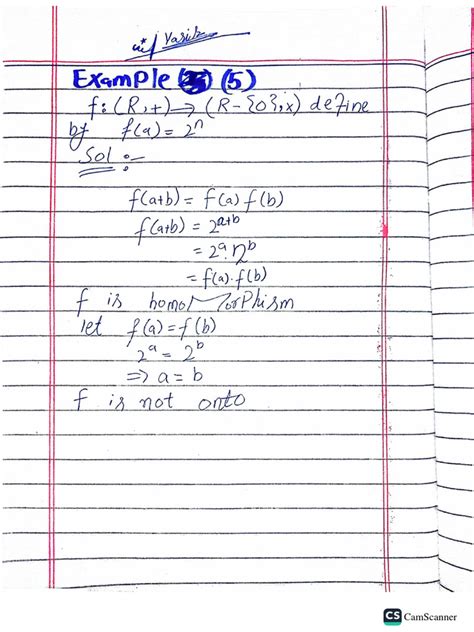 Yasir
Example (5)
f: (R,+) → (R-{0},x) define
by f(a) = 2ⁿ
Sol :-
f(a+b) = f(a) f(b)
f(a+b) = 2ᵃ⁺ᵇ
= 2ᵃ. 2ᵇ
= f(a).f(b)
f is homomorphism
let f(a) = f(b)
2ᵃ = 2ᵇ
⇒ a = b
f is not onto
CS CamScanner